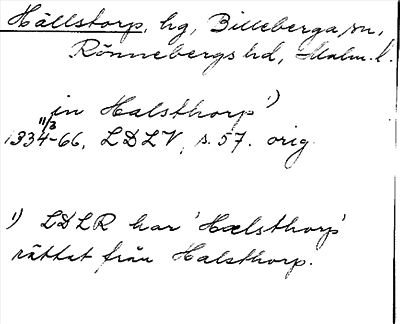 Hällstorp, hg, Billeberga sn,
Rönnebergs hd, Malm. l.
in Halsthorp ¹)
11/3
1334-66, LDLV, s. 57. orig.
¹) LDLR har 'Hælsthorp'
rättat från Halsthorp.